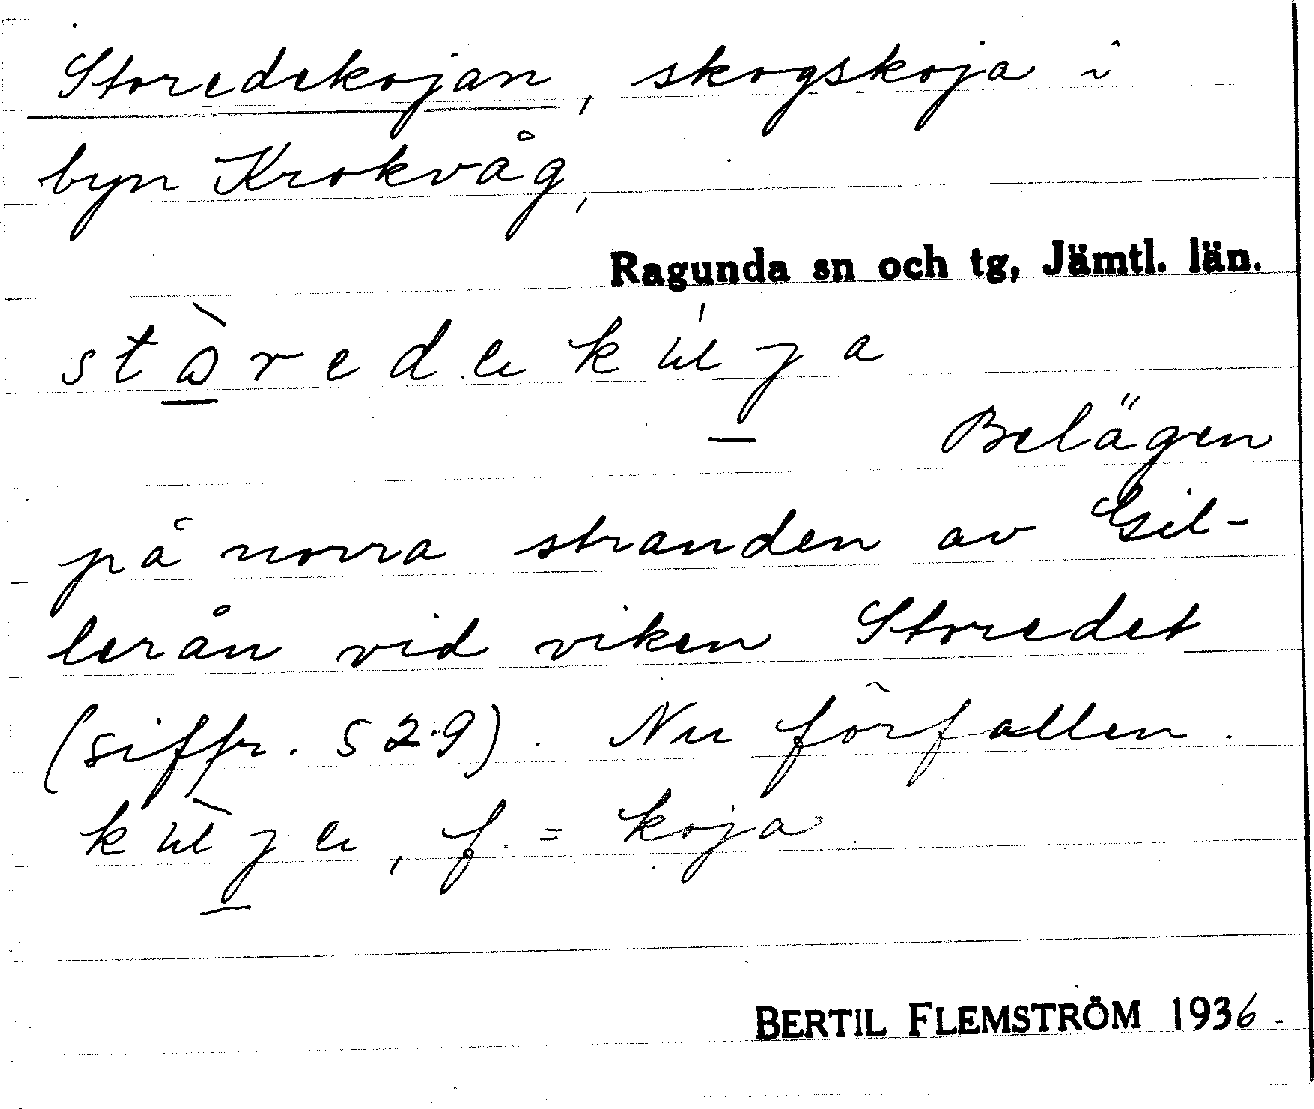 Storedekojan, skogskoja i
byn Krokvåg,
Ragunda sn och tg, Jämtl. län.
Belägen
på norra stranden av Gil-
lerån vid viken Storedet
(siffr. 529). Nu förfallen.
f. = koja
BERTIL FLEMSTRÖM 1936